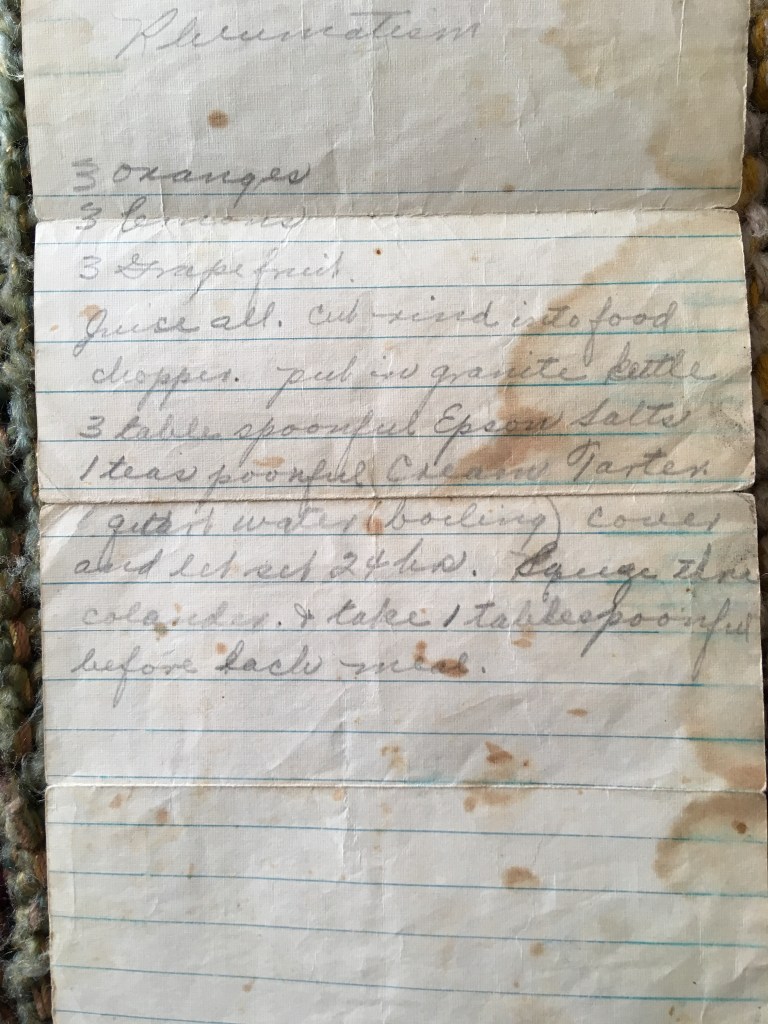 Rheumatism
3 oranges
3 lemons
3 Grapefruit.
Juice all. cut rind into food
chopper. put in granite kettle
3 table spoonful Epson Salts
1 teas poonful Cream Tarter
1 quart water (boiling) cover
and let set 24 hr. Squeze thru
colander. & take 1 tablespoonful
before each meal.